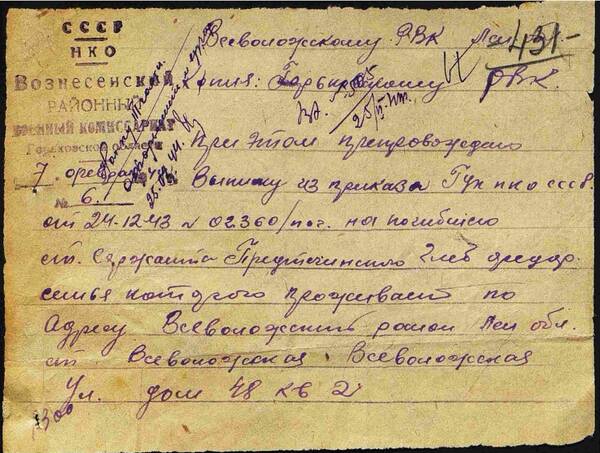 СССР
НКО
Вознесенский
РАЙОННЫЙ
ВОЕННЫЙ КОМИССАРИАТ
Горьковской области
7 феврал
№ 6
Всеволожскому РВК Лен
-431-
Копия: Горьковскому РВК.
При этом препровождаю
Выписку из приказа Гук нко ссср.
от 24.12.43 № 02360/пог. на погибшего
ст. Сержанта Предтеченского Глеб Федор.
семья которого проживает по
Адресу Всеволожский район Лен обл.
ст Всеволожская Всеволожская
Ул. дом 48 кв 2
1300